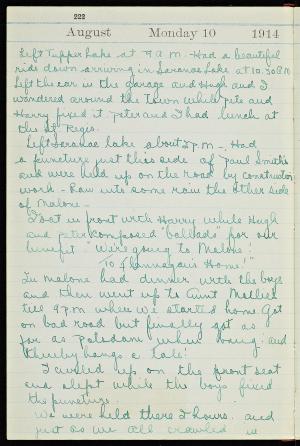 222
August Monday 10 1914
Left Tupper Lake at 9 A.M. Had a beautiful
ride down arriving in Saranac Lake at 10.30 A.M.
Left the car in the garage and Hugh and I
wandered around the town while Pete and
Harry fixed it. Peter and I had lunch at
the St. Regis.
Left Saranac Lake about 2 P.M. - Had
a puncture just this side of Paul Smith's
and were held up on the road by construction
work - Ran into some rain the other side
of Malone -
I sat in front with Harry while Hugh
and Peter composed "ballads" for our
benefit. "We're going to Malone!
To Flannagan's Home!"
In Malone had dinner with the boys
and then went up to Aunt Mollies
till 9 P.M. when we started home. Got
on bad road but finally got as
far as Potsdam when bang! and
thereby hangs a tale!
I curled up on the front seat
and slept while the boys fixed
the puncture.
We were held there 2 hours and
just as we all crawled in